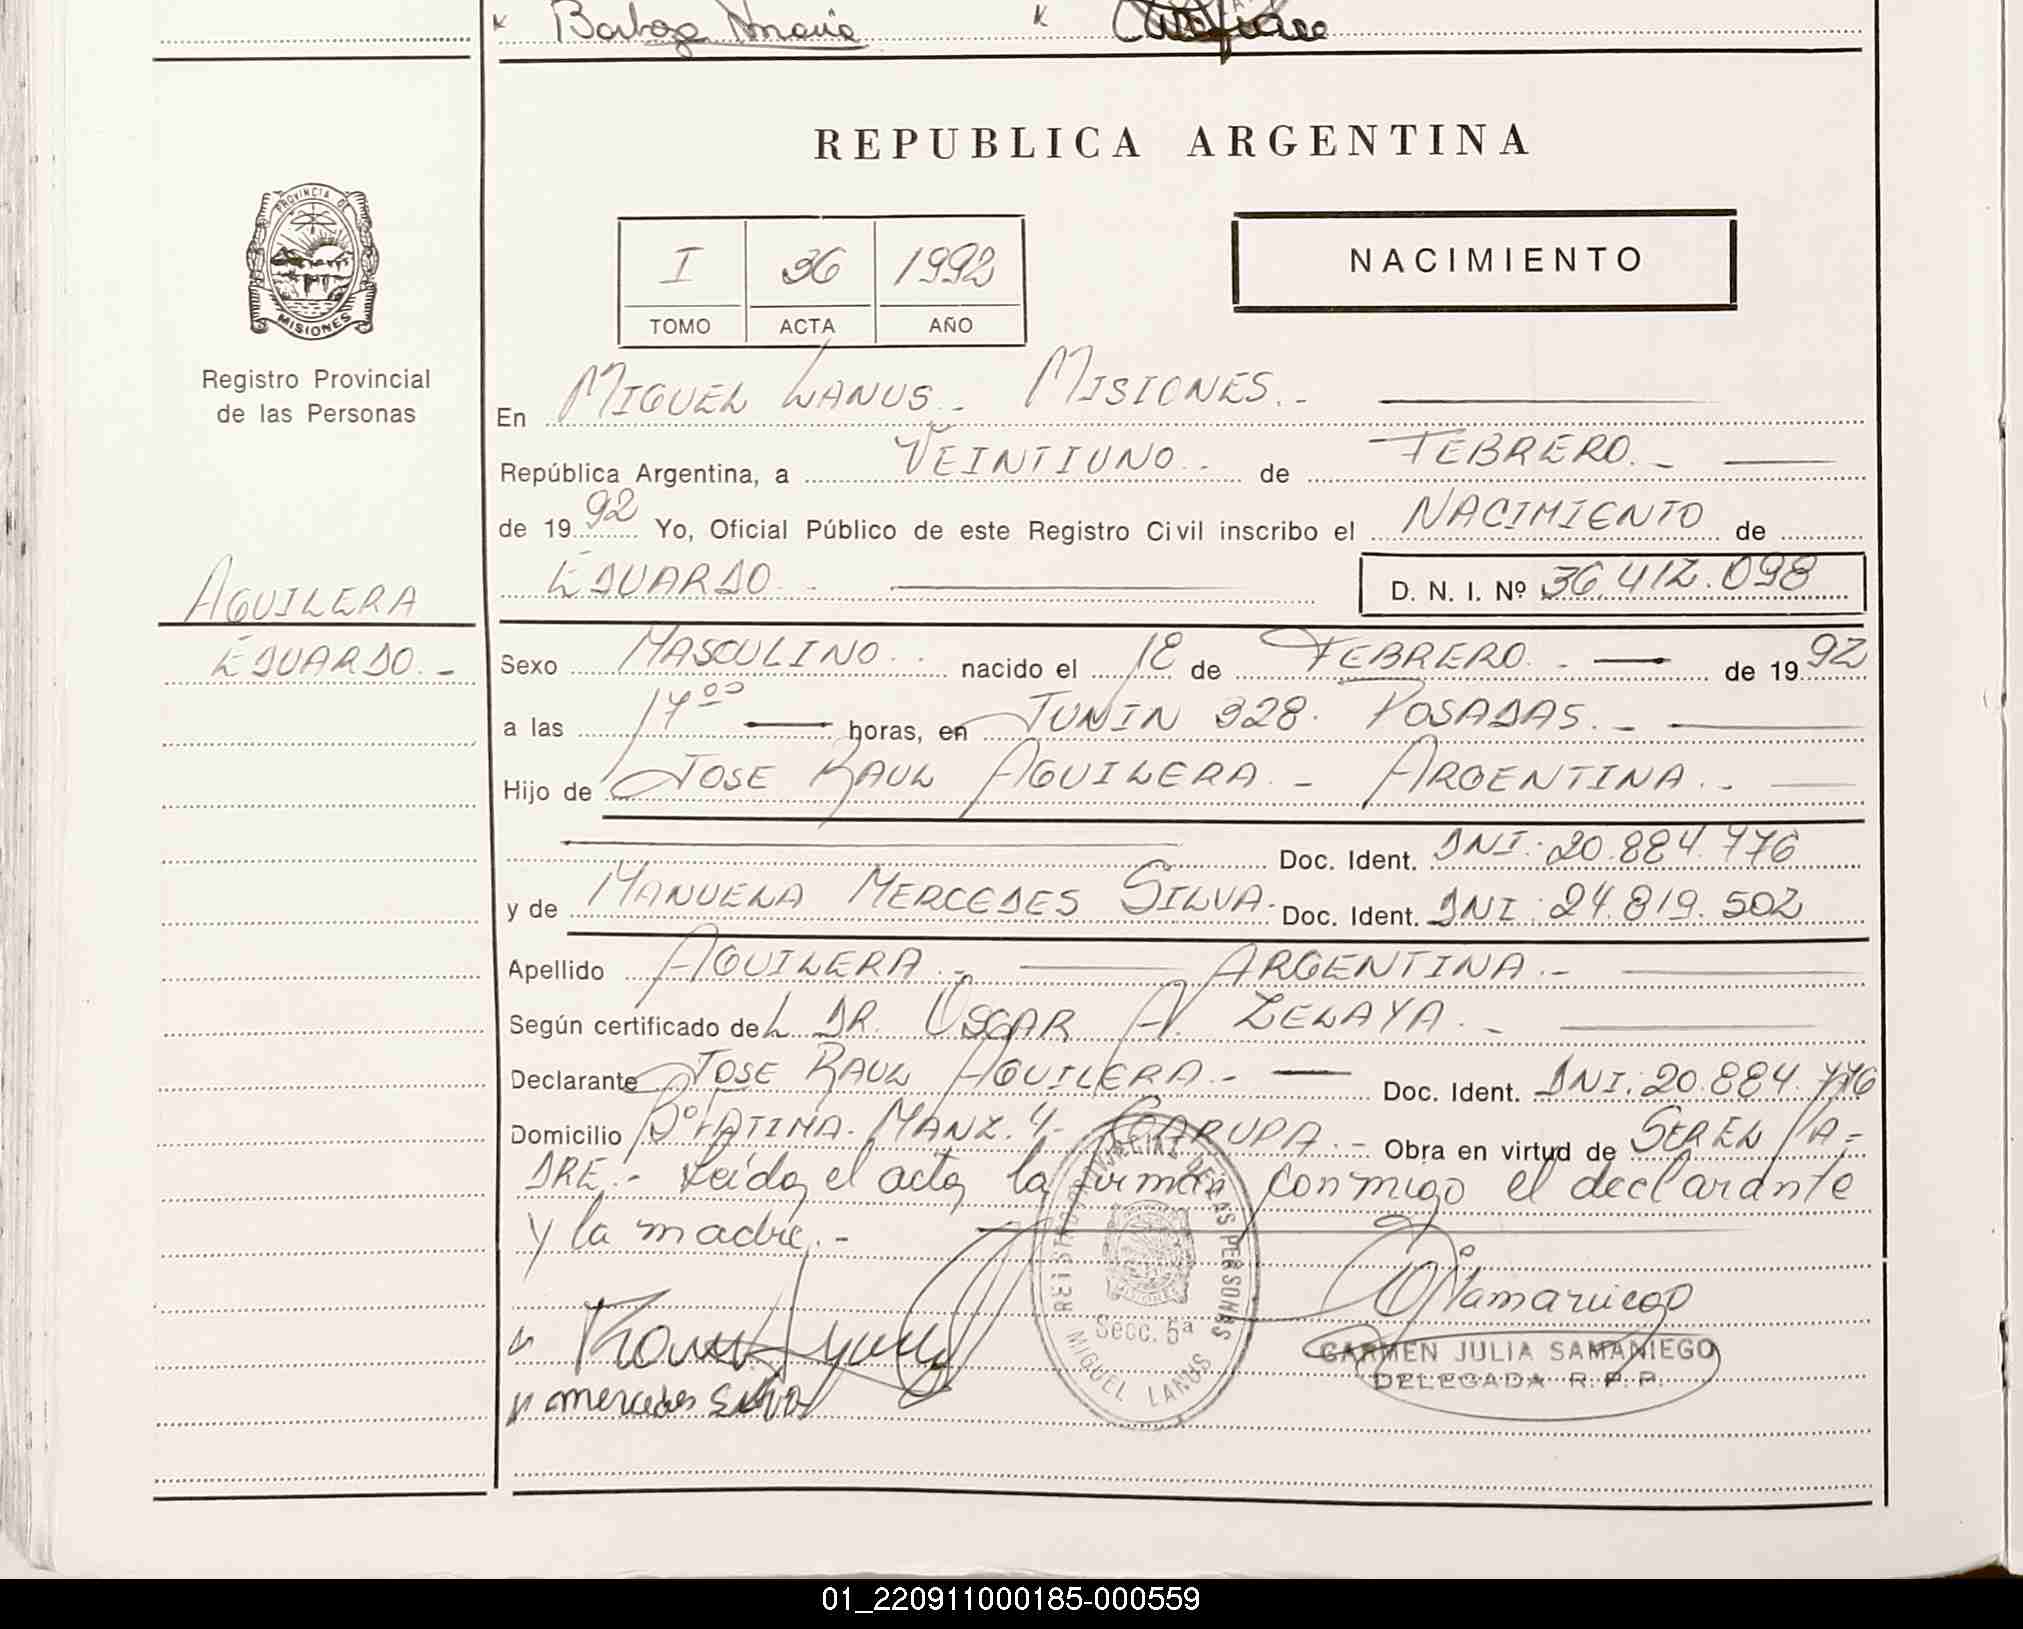 Barboza Maria
REPUBLICA ARGENTINA
PROVINCIA DE
MISIONES
Registro Provincial
de las Personas
I 36 1992
TOMO ACTA AÑO
NACIMIENTO
En MIGUEL LANUS.- MISIONES.-
República Argentina, a VEINTIUNO.- de FEBRERO.-
de 1992 Yo, Oficial Público de este Registro Civil inscribo el NACIMIENTO de
EDUARDO.- D. N. I. Nº 36.412.098
AGUILERA
EDUARDO.-
Sexo MASCULINO.- nacido el 18 de FEBRERO.- de 1992
a las 17⁰⁰ horas, en JUNIN 328. POSADAS.-
Hijo de JOSE RAUL AGUILERA.- ARGENTINA.-
Doc. Ident. DNI: 20.884.776
y de MANUELA MERCEDES SILVA. Doc. Ident. DNI: 24.819.502
Apellido AGUILERA.- ARGENTINA.-
Según certificado deL DR. OSCAR A. ZELAYA.-
Declarante JOSE RAUL AGUILERA.- Doc. Ident. DNI: 20.884.776
Domicilio Bº FATIMA. MANZ. 4- GARUPA.- Obra en virtud de SER EL PA-
DRE.- Leída el acta la firman conmigo el declarante
y la madre.-
REGISTRO PROVINCIAL DE LAS PERSONAS
Secc. 5ª
MIGUEL LANUS
Samaniego
CARMEN JULIA SAMANIEGO
DELEGADA R. P. P.
mercedes Silva
01_220911000185-000559